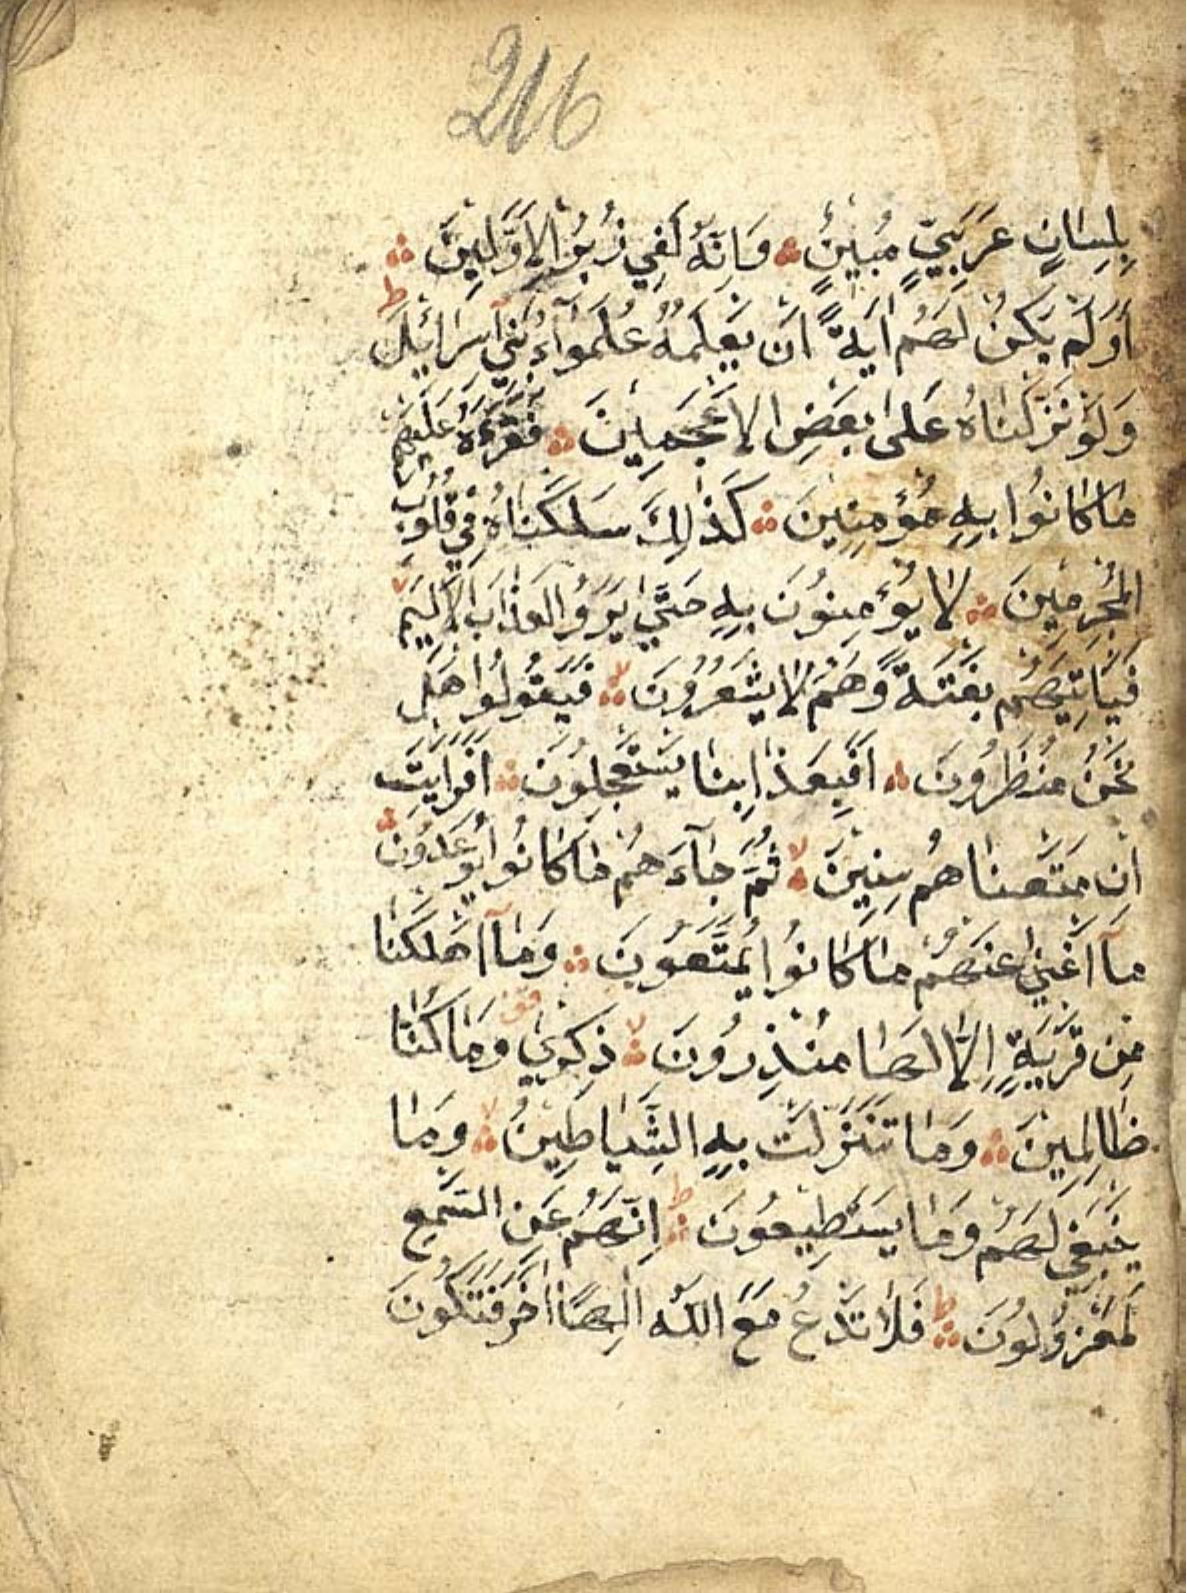 216
بِلِسَانٍ عَرَبِيٍّ مُبِينٍ وَاِنَّهُ لَفِي زُبُرِ الاَوَّلِينَ
ط
اَوَلَمْ يَكُنْ لَهُمْ اٰيَةً اَنْ يَعْلَمَهُ عُلَمٰٓوءُا بَنِي اِسْرَائِلَ
وَلَوْ نَزَّلْنَاهُ عَلٰى بَعْضِ الاَعْجَمِينَ فَقَرَءَهُ عَلَيْهِمْ
مَا كَانُوا بِهِ مُؤْمِنِينَ كَذٰلِكَ سَلَكْنَاهُ فِي قُلُوبِ
الْمُجْرِمِينَ لَا يُؤْمِنُونَ بِهِ حَتّٰي يَرَوُا العَذَابَ الاَلِيمَ لا
فَيَأْتِيَهُمْ بَغْتَةً وَهُمْ لَا يَشْعُرُونَ لا فَيَقُولُوا هَلْ
نَحْنُ مُنْظَرُونَ اَفَبِعَذَابِنَا يَسْتَعْجِلُونَ اَفَرَاَيْتَ
اِنْ مَتَّعْنَاهُمْ سِنِينَ لا ثُمَّ جَآءَهُمْ مَا كَانُوا يُوعَدُونَ
مَآ اَغْنٰي عَنْهُمْ مَا كَانُوا يُمَتَّعُونَ وَمَآ اَهْلَكْنَا
مِنْ قَرْيَةٍ اِلَّا لَهَا مُنْذِرُونَ لا ذِكْرٰي وَمَا كُنَّا
ظَالِمِينَ وَمَا تَنَزَّلَتْ بِهِ الشَّيَاطِينُ لا وَمَا
يَنْبَغِي لَهُمْ وَمَا يَسْتَطِيعُونَ ط اِنَّهُمْ عَنِ السَّمْعِ
لَمَعْزُولُونَ ط فَلَا تَدْعُ مَعَ اللّٰهِ اِلٰهًا اٰخَرَ فَتَكُونَ